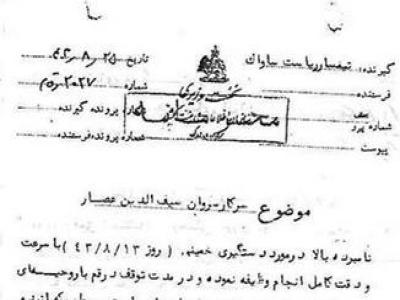 گیرنده: تیمسار ریاست ساواک
تاریخ
فرستنده
نخست وزیری
شماره
شماره پیرو
شماره پرونده گیرنده
پیوست
شماره پرونده فرستنده
موضوع سرکار سروان سیف الدین عصار
نامبرده بالا در مورد دستگیری خمینی (روز ۴۳/۸/۱۳) با سرعت
و دقت کامل انجام وظیفه نموده و در مدت توقف در قم با روحیه‌ای